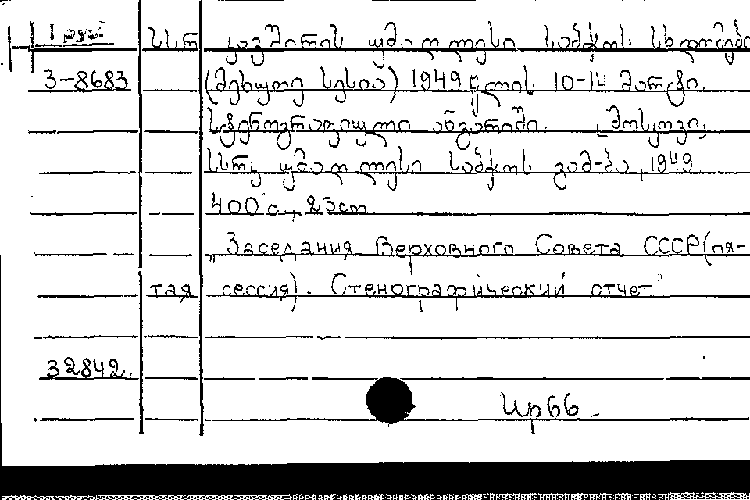 სსრ კავშირის უმაღლესი საბჭოს სხდომები
3-8683 (მეხუთე სესია) 1949 წლის 10-14 მარტი.
სტენოგრაფიული ანგარიში. [მოსკოვი,
სსრკ უმაღლესი საბჭოს გამ-ბა, 1949
400 с., 23cm
„Заседания Верховного Совета СССР (пя-
тая сессия). Стенографический отчет"
32842.